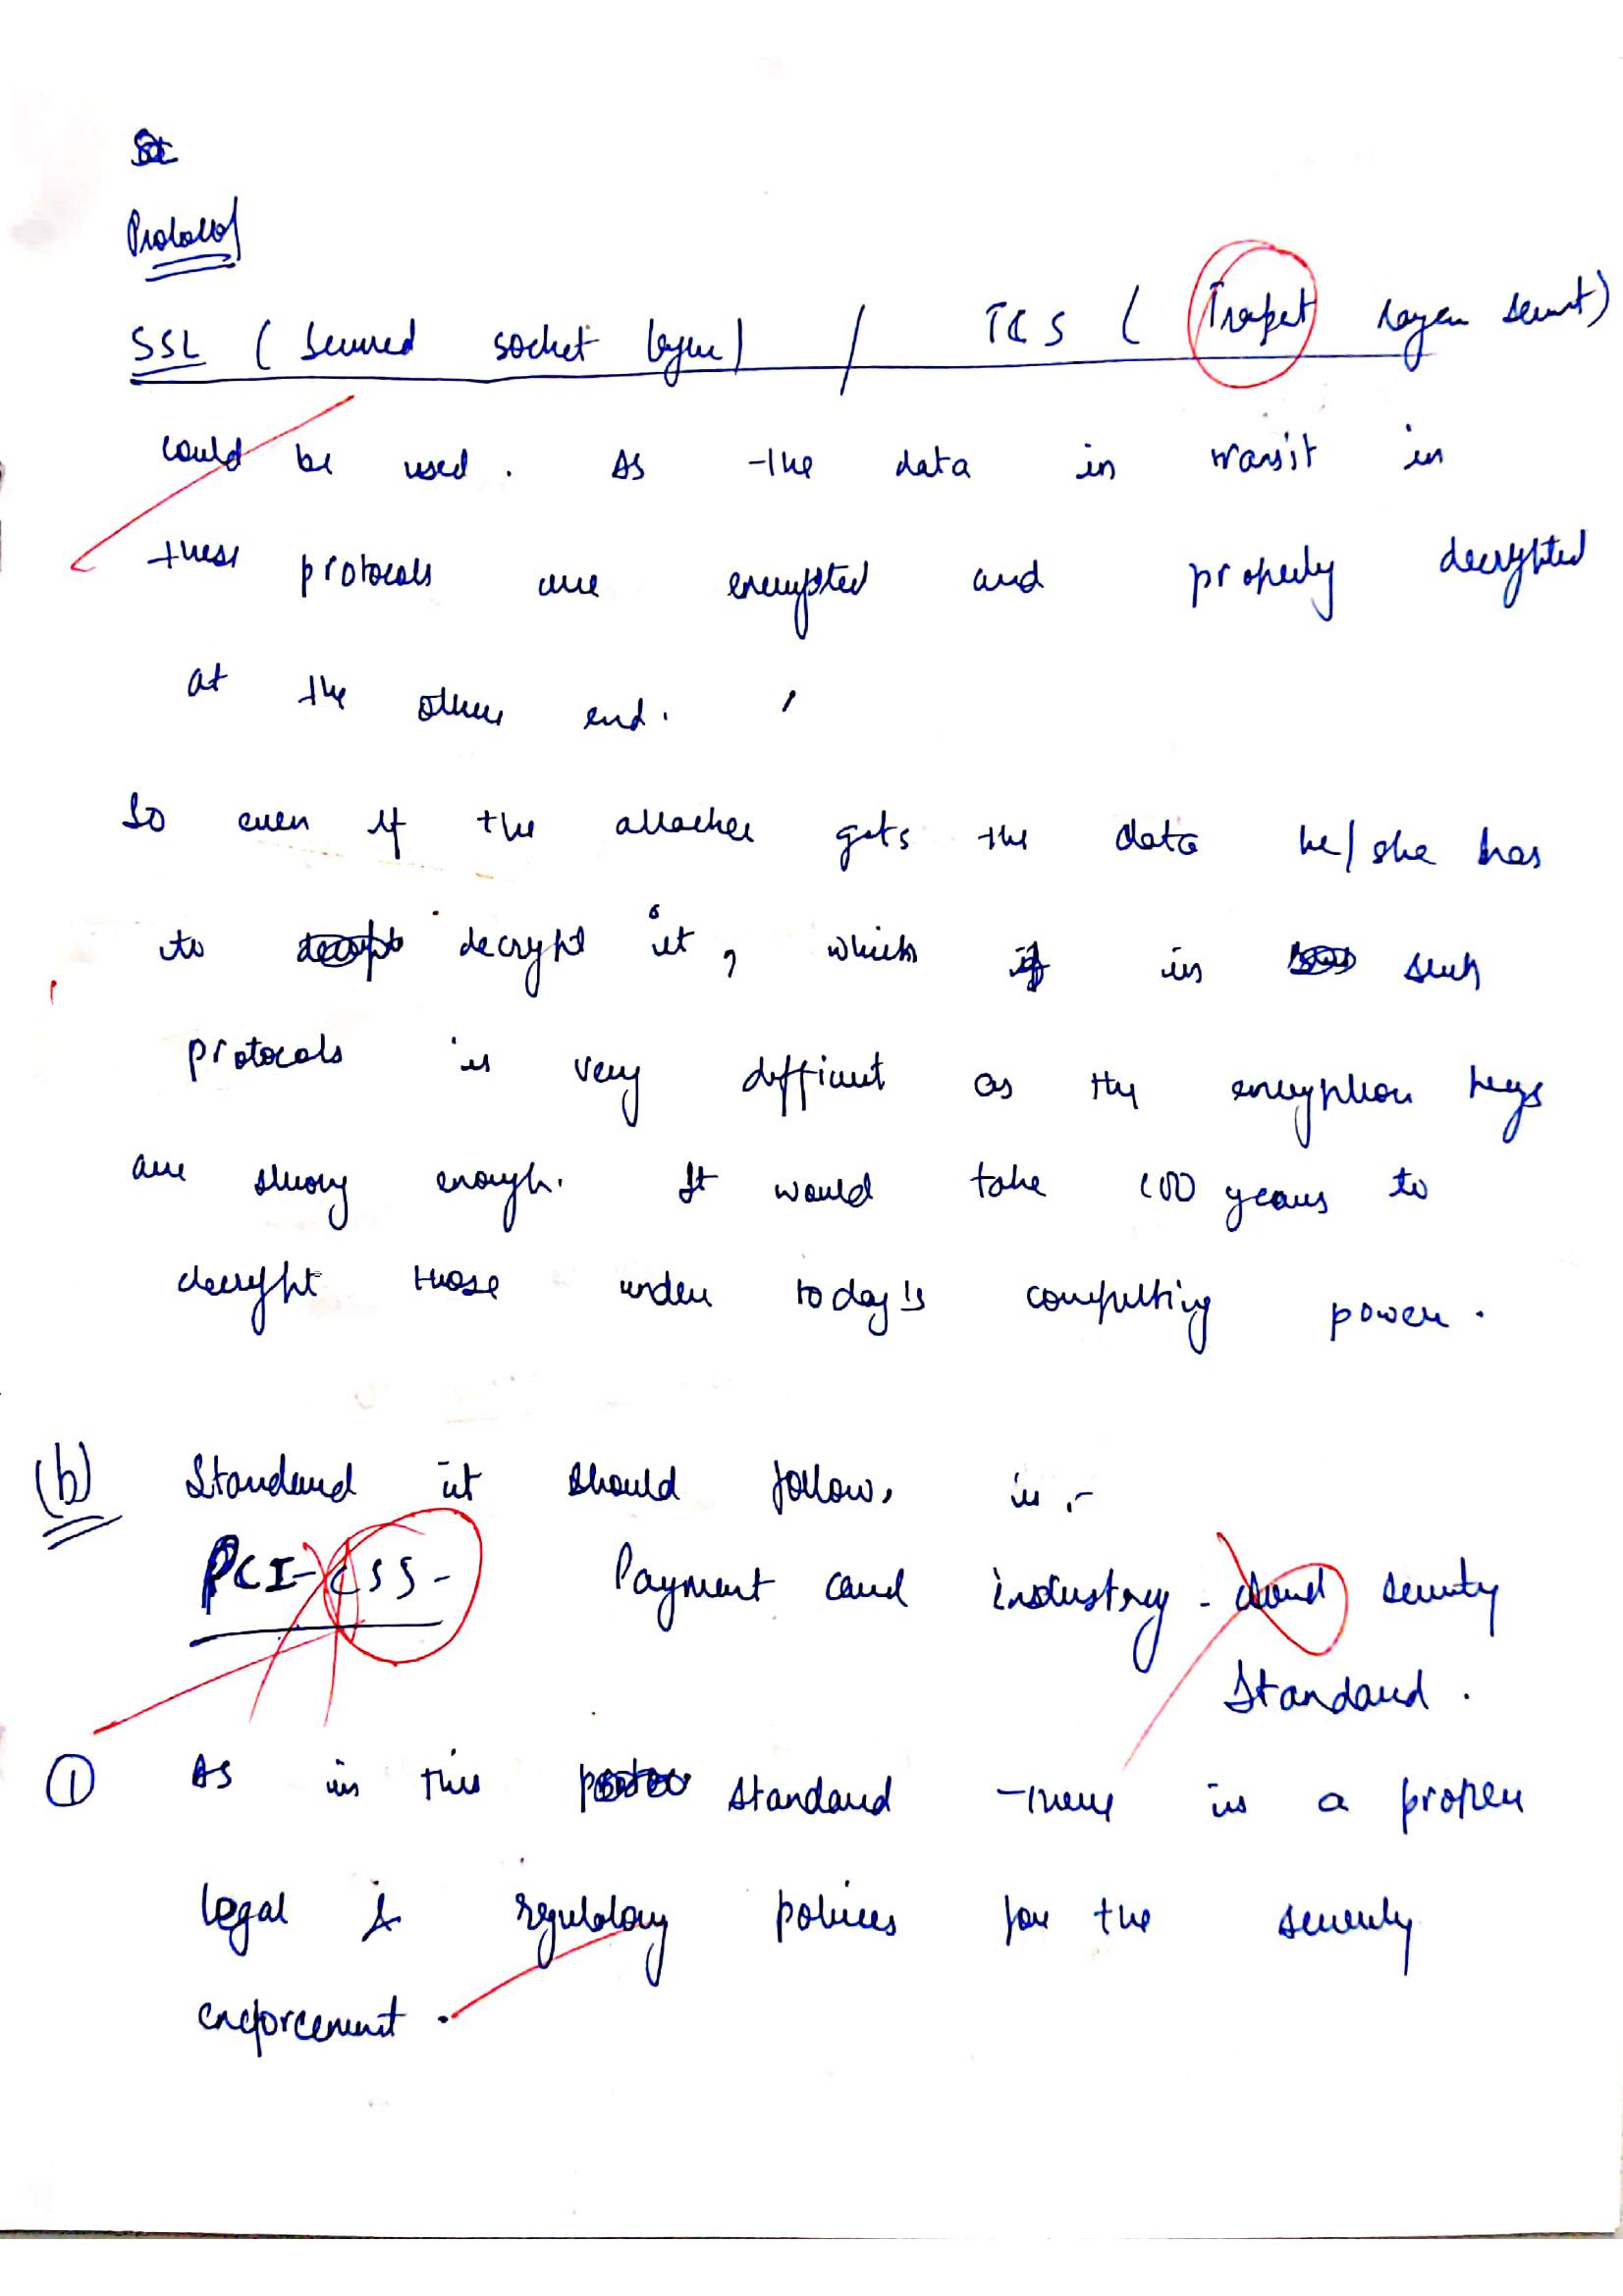 Protocol
SSL ( Secured socket layer) / TCS ( Traspet layer securt)
could be used . As the data in transit in
these protocols are encrypted and properly decrypted
at the other end.
So even if the attacker gets the data he/she has
to decrypt it , which is in such
protocols is very difficult as the encryption keys
are strong enough. It would take 100 years to
decrypt those under today's computing power .
(b) Standard it should follow, is :-
PCI-CSS - Payment card industry - cloud security
Standard .
① As in this standard there is a proper
legal & regulatory policies for the security
enforcement .